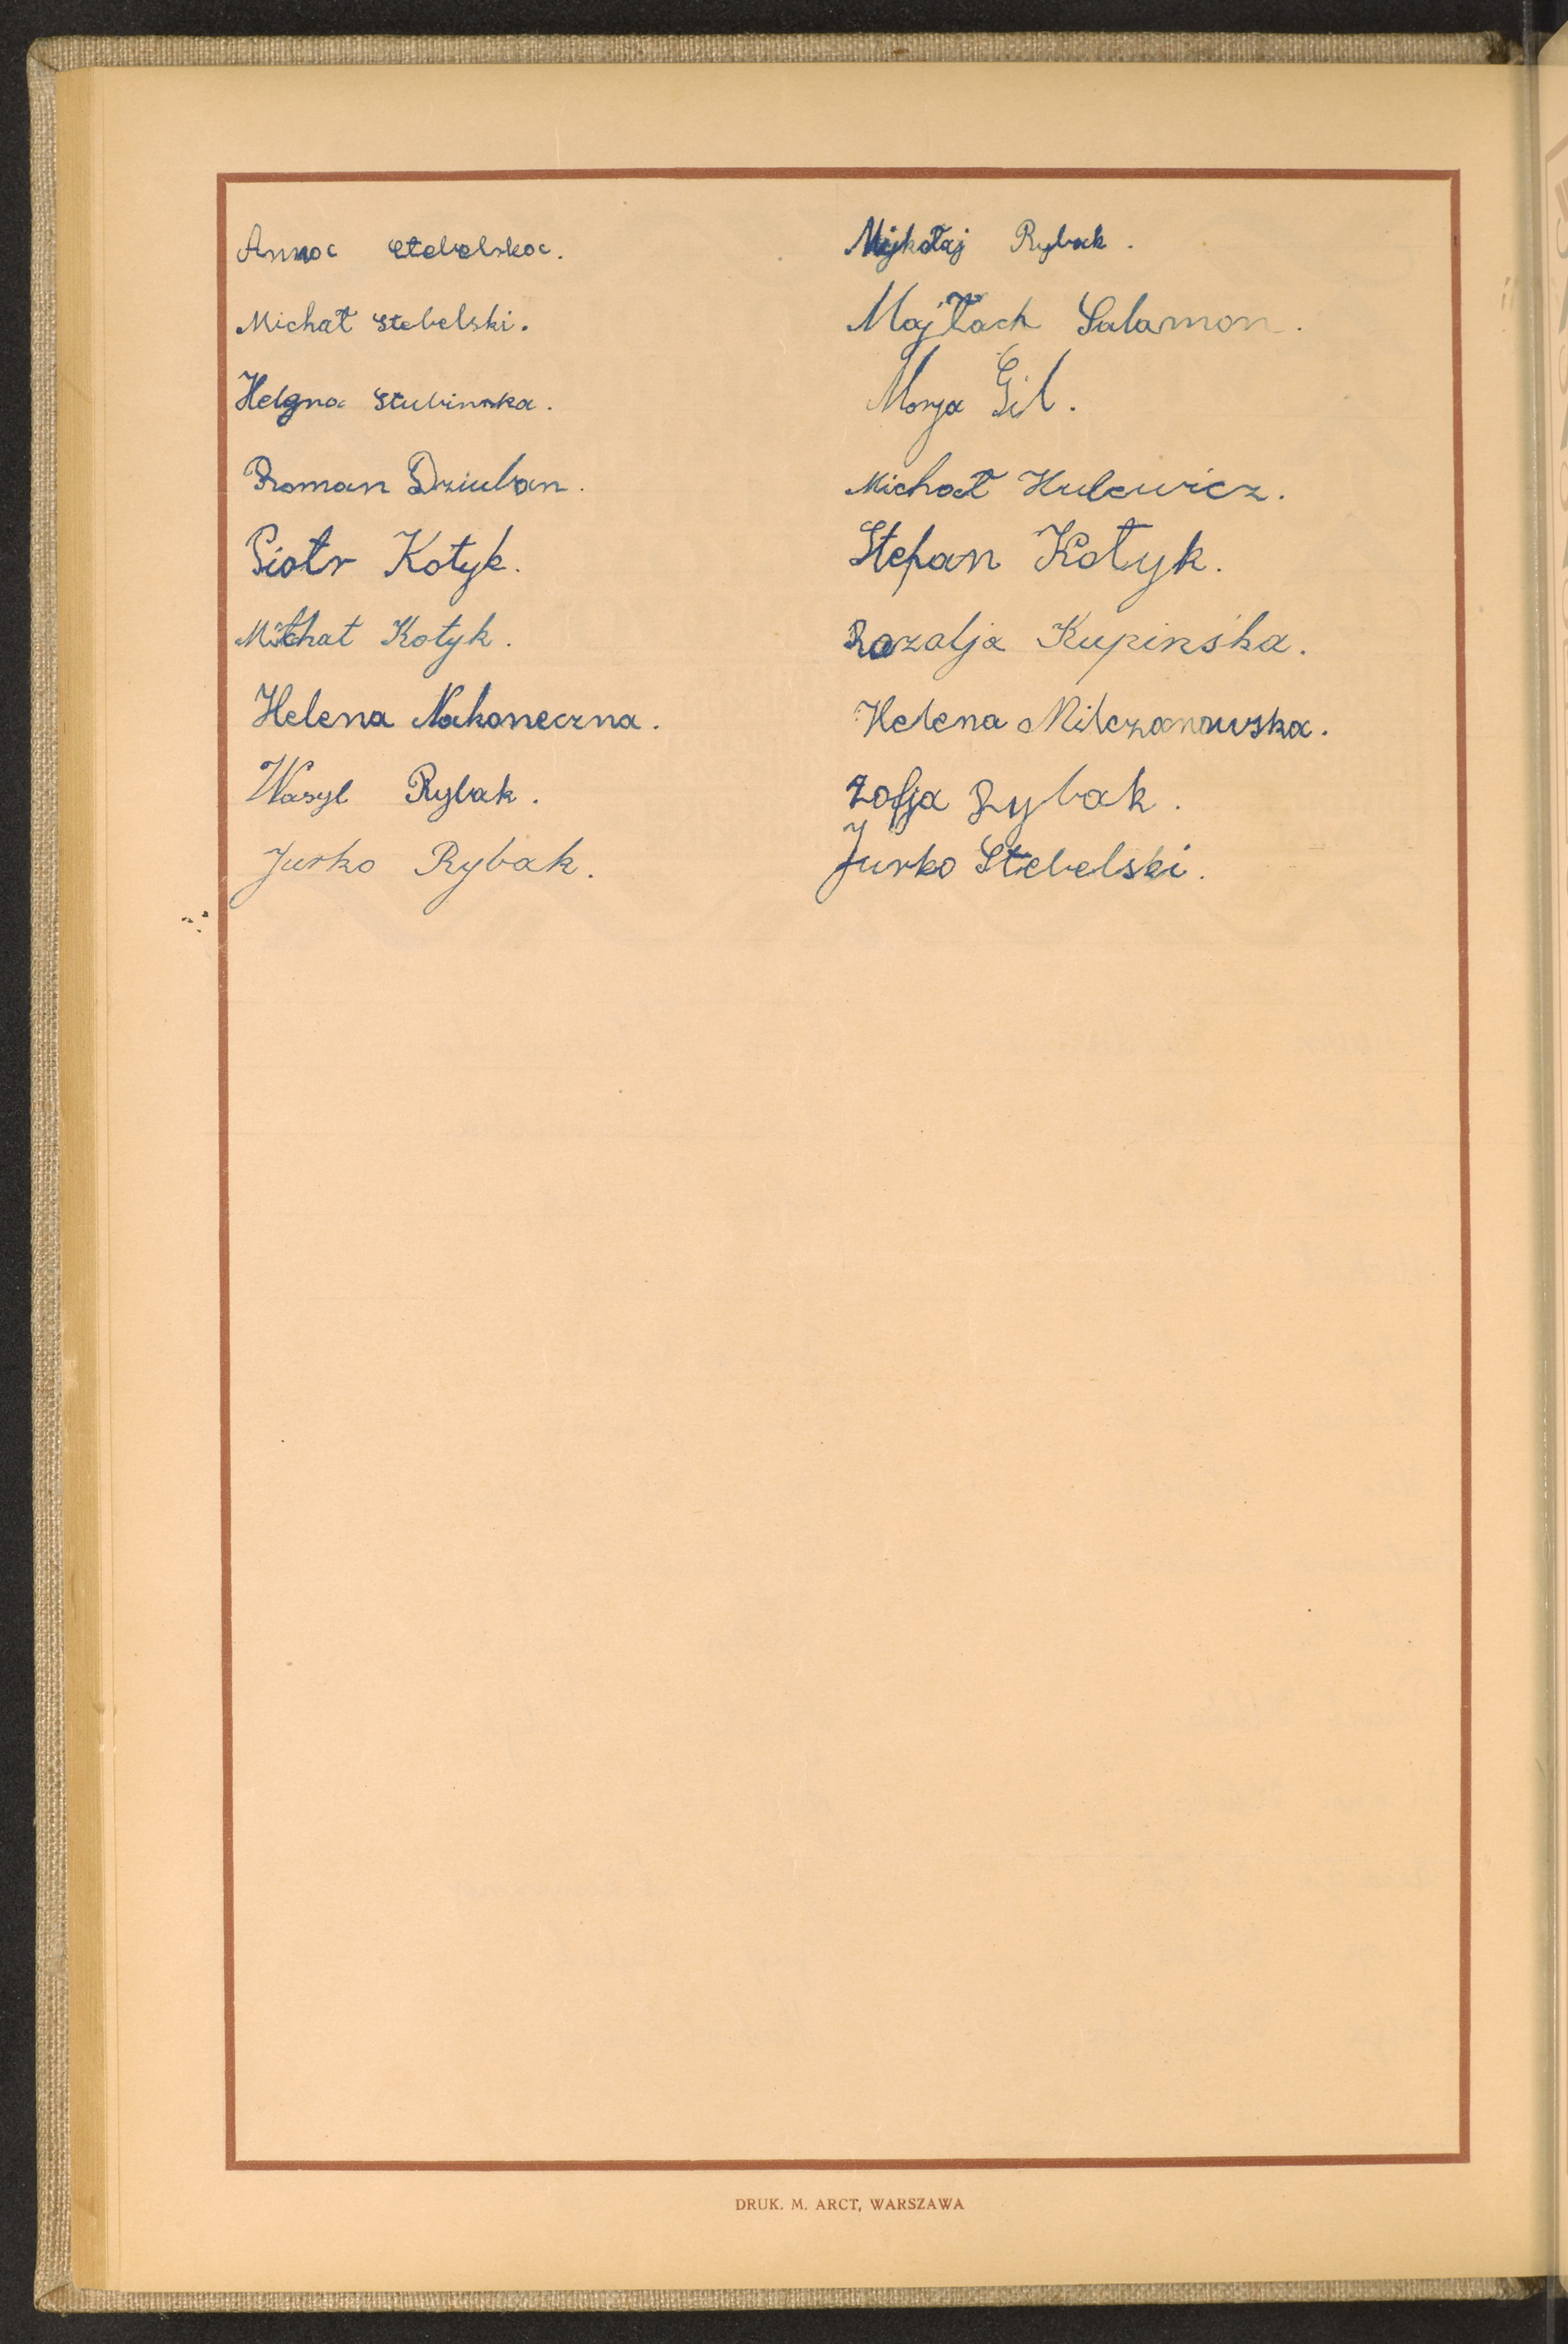 Anna Stebelska.
Michał Stebelski.
Helena Stubinska.
Roman Dziuban.
Piotr Kotyk.
Michał Kotyk.
Helena Nakoneczna.
Wasyl Rybak.
Jurko Rybak.
Mykołaj Rybak.
Majłach Salamon.
Marja Gil.
Michał Hulewicz.
Stefan Kotyk.
Rozalja Kupińska.
Helena Milczanowska.
Zofja Rybak.
Jurko Stebelski.
DRUK. M. ARCT, WARSZAWA